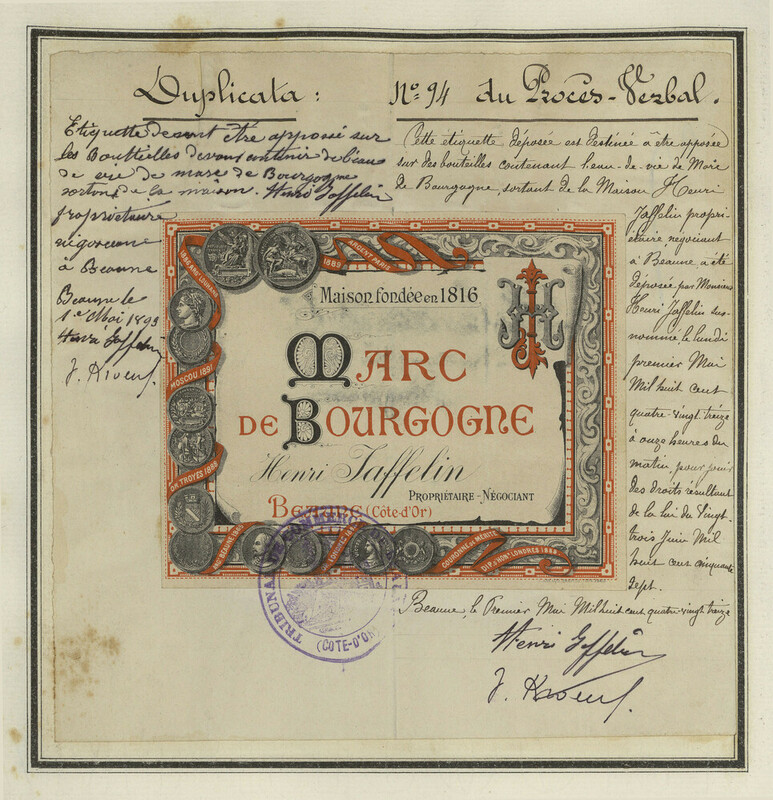 Duplicata : N° 94 du Procès-Verbal.
Etiquette devant être apposé sur
les Bouttielles devant contenir de l'eau
de vie de marc de Bourgogne
sortant de la maison. Henri Jaffelin
propriétaire
négociant
à Beaune
Beaune le
1er Mai 1893
Henri Jaffelin
Cette etiquette déposée est destinée à être apposée
sur des bouteilles contenant l'eau-de-vie de Marc
de Bourgogne, sortant de la Maison Henri
Jaffelin propri-
étaire négociant
à Beaune, a été
déposée par Monsieur
Henri Jaffelin sus-
nommé, le lundi
premier Mai
Mil huit cent
quatre-vingt treize
à onze heures du
matin, pour jouir
des droits résultant
de la loi du Vingt-
trois Juin Mil
huit cent cinquante
Sept.
Beaune, le Premier Mai Mil huit cent quatre-vingt treize
Henri Jaffelin
ARGENT PARIS
1889
Maison fondée en 1816
JH
MARC
DE BOURGOGNE
Henri Jaffelin
PROPRIÉTAIRE - NÉGOCIANT
BEAUNE (Côte-d'Or)
MOSCOU 1891
OR. TROYES 1888
COURONNE DE MÉRITE
DIP. D'HONr LONDRES 1888
TRIBUNAL DE COMMERCE
(COTE-D'OR)